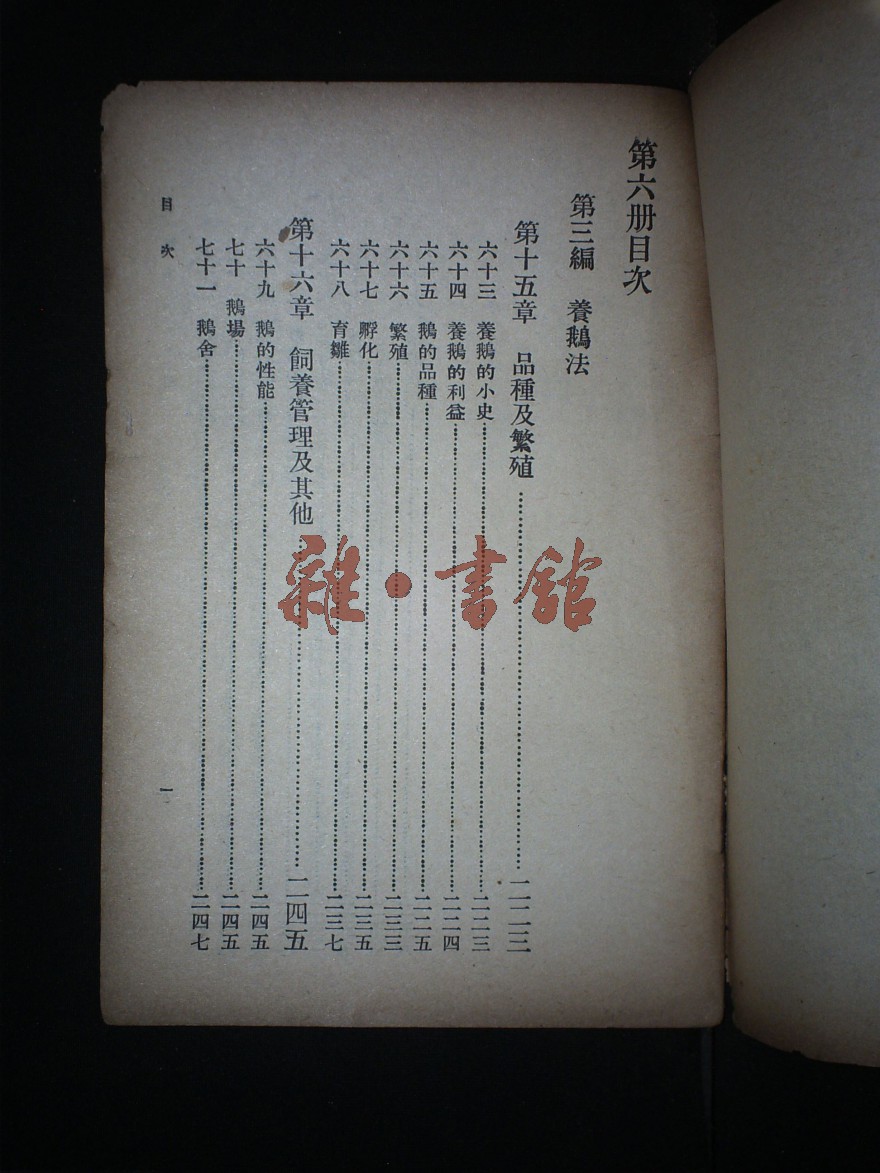 第六册目次
第三編 養鵝法
第十五章 品種及繁殖……二二三
六十三 養鵝的小史……二二三
六十四 養鵝的利益……二二四
六十五 鵝的品種……二二五
六十六 繁殖……二三三
六十七 孵化……二三五
六十八 育雛……二三七
第十六章 飼養管理及其他……二四五
六十九 鵝的性能……二四五
七十 鵝場……二四五
七十一 鵝舍……二四七
目次
一
雜·書館